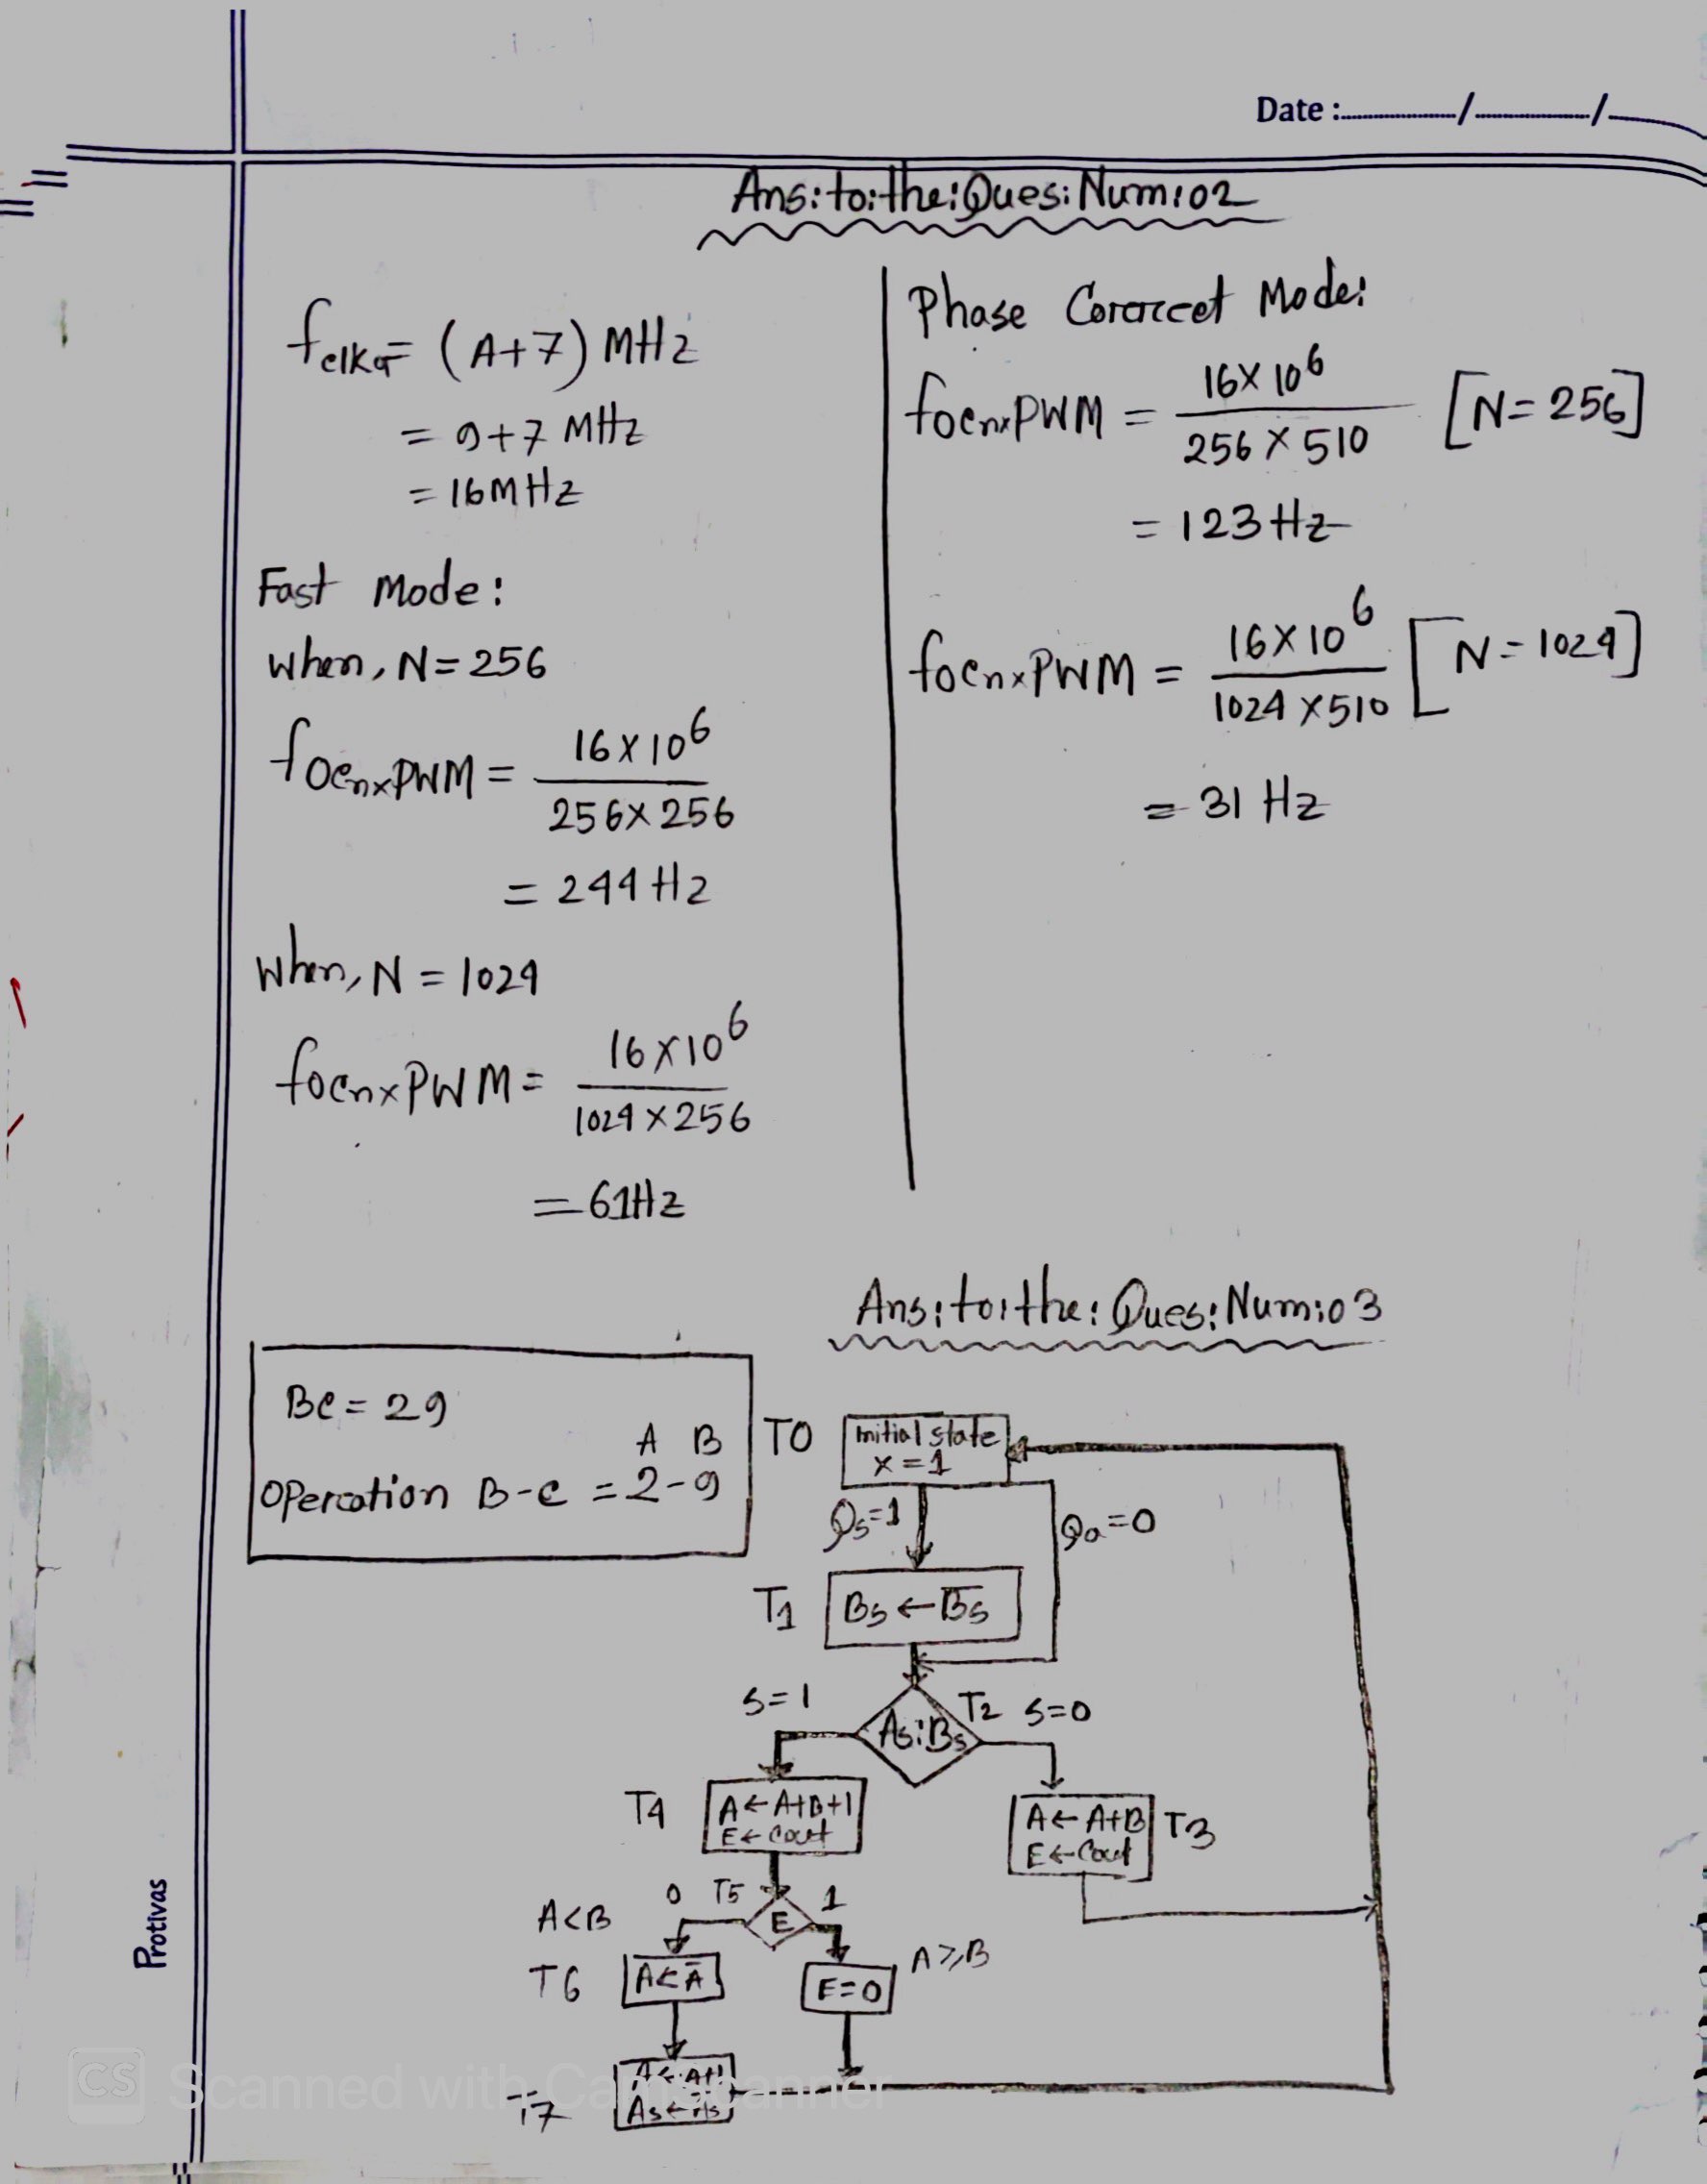 Date :............/............/
Ans:to:the:Ques:Num:02
fclk = (A+7) MHz
= 9+7 MHz
= 16MHz
Fast Mode:
When, N=256
focnxPWM = 16×10^6 / 256×256
= 244 Hz
When, N = 1024
focnxPWM = 16×10^6 / 1024×256
= 61Hz
Phase Correct Mode:
focnxPWM = 16×10^6 / 256×510 [N=256]
= 123 Hz
focnxPWM = 16×10^6 / 1024×510 [N=1024]
= 31 Hz
Ans:to:the:Ques:Num:03
BC = 29
A B
Operation B-C = 2-9
T0
Initial state
x=1
Qs=1
Qa=0
T1
Bs ← B̅s̅
S=1
As:Bs
T2
S=0
T4
A←A+B+1
E←Cout
A←A+B
E←Cout
T3
A<B
0
T5
E
1
A≥B
T6
A←A̅
E=0
T7
A←A+1
As←As
Protivas
CS Scanned with CamScanner